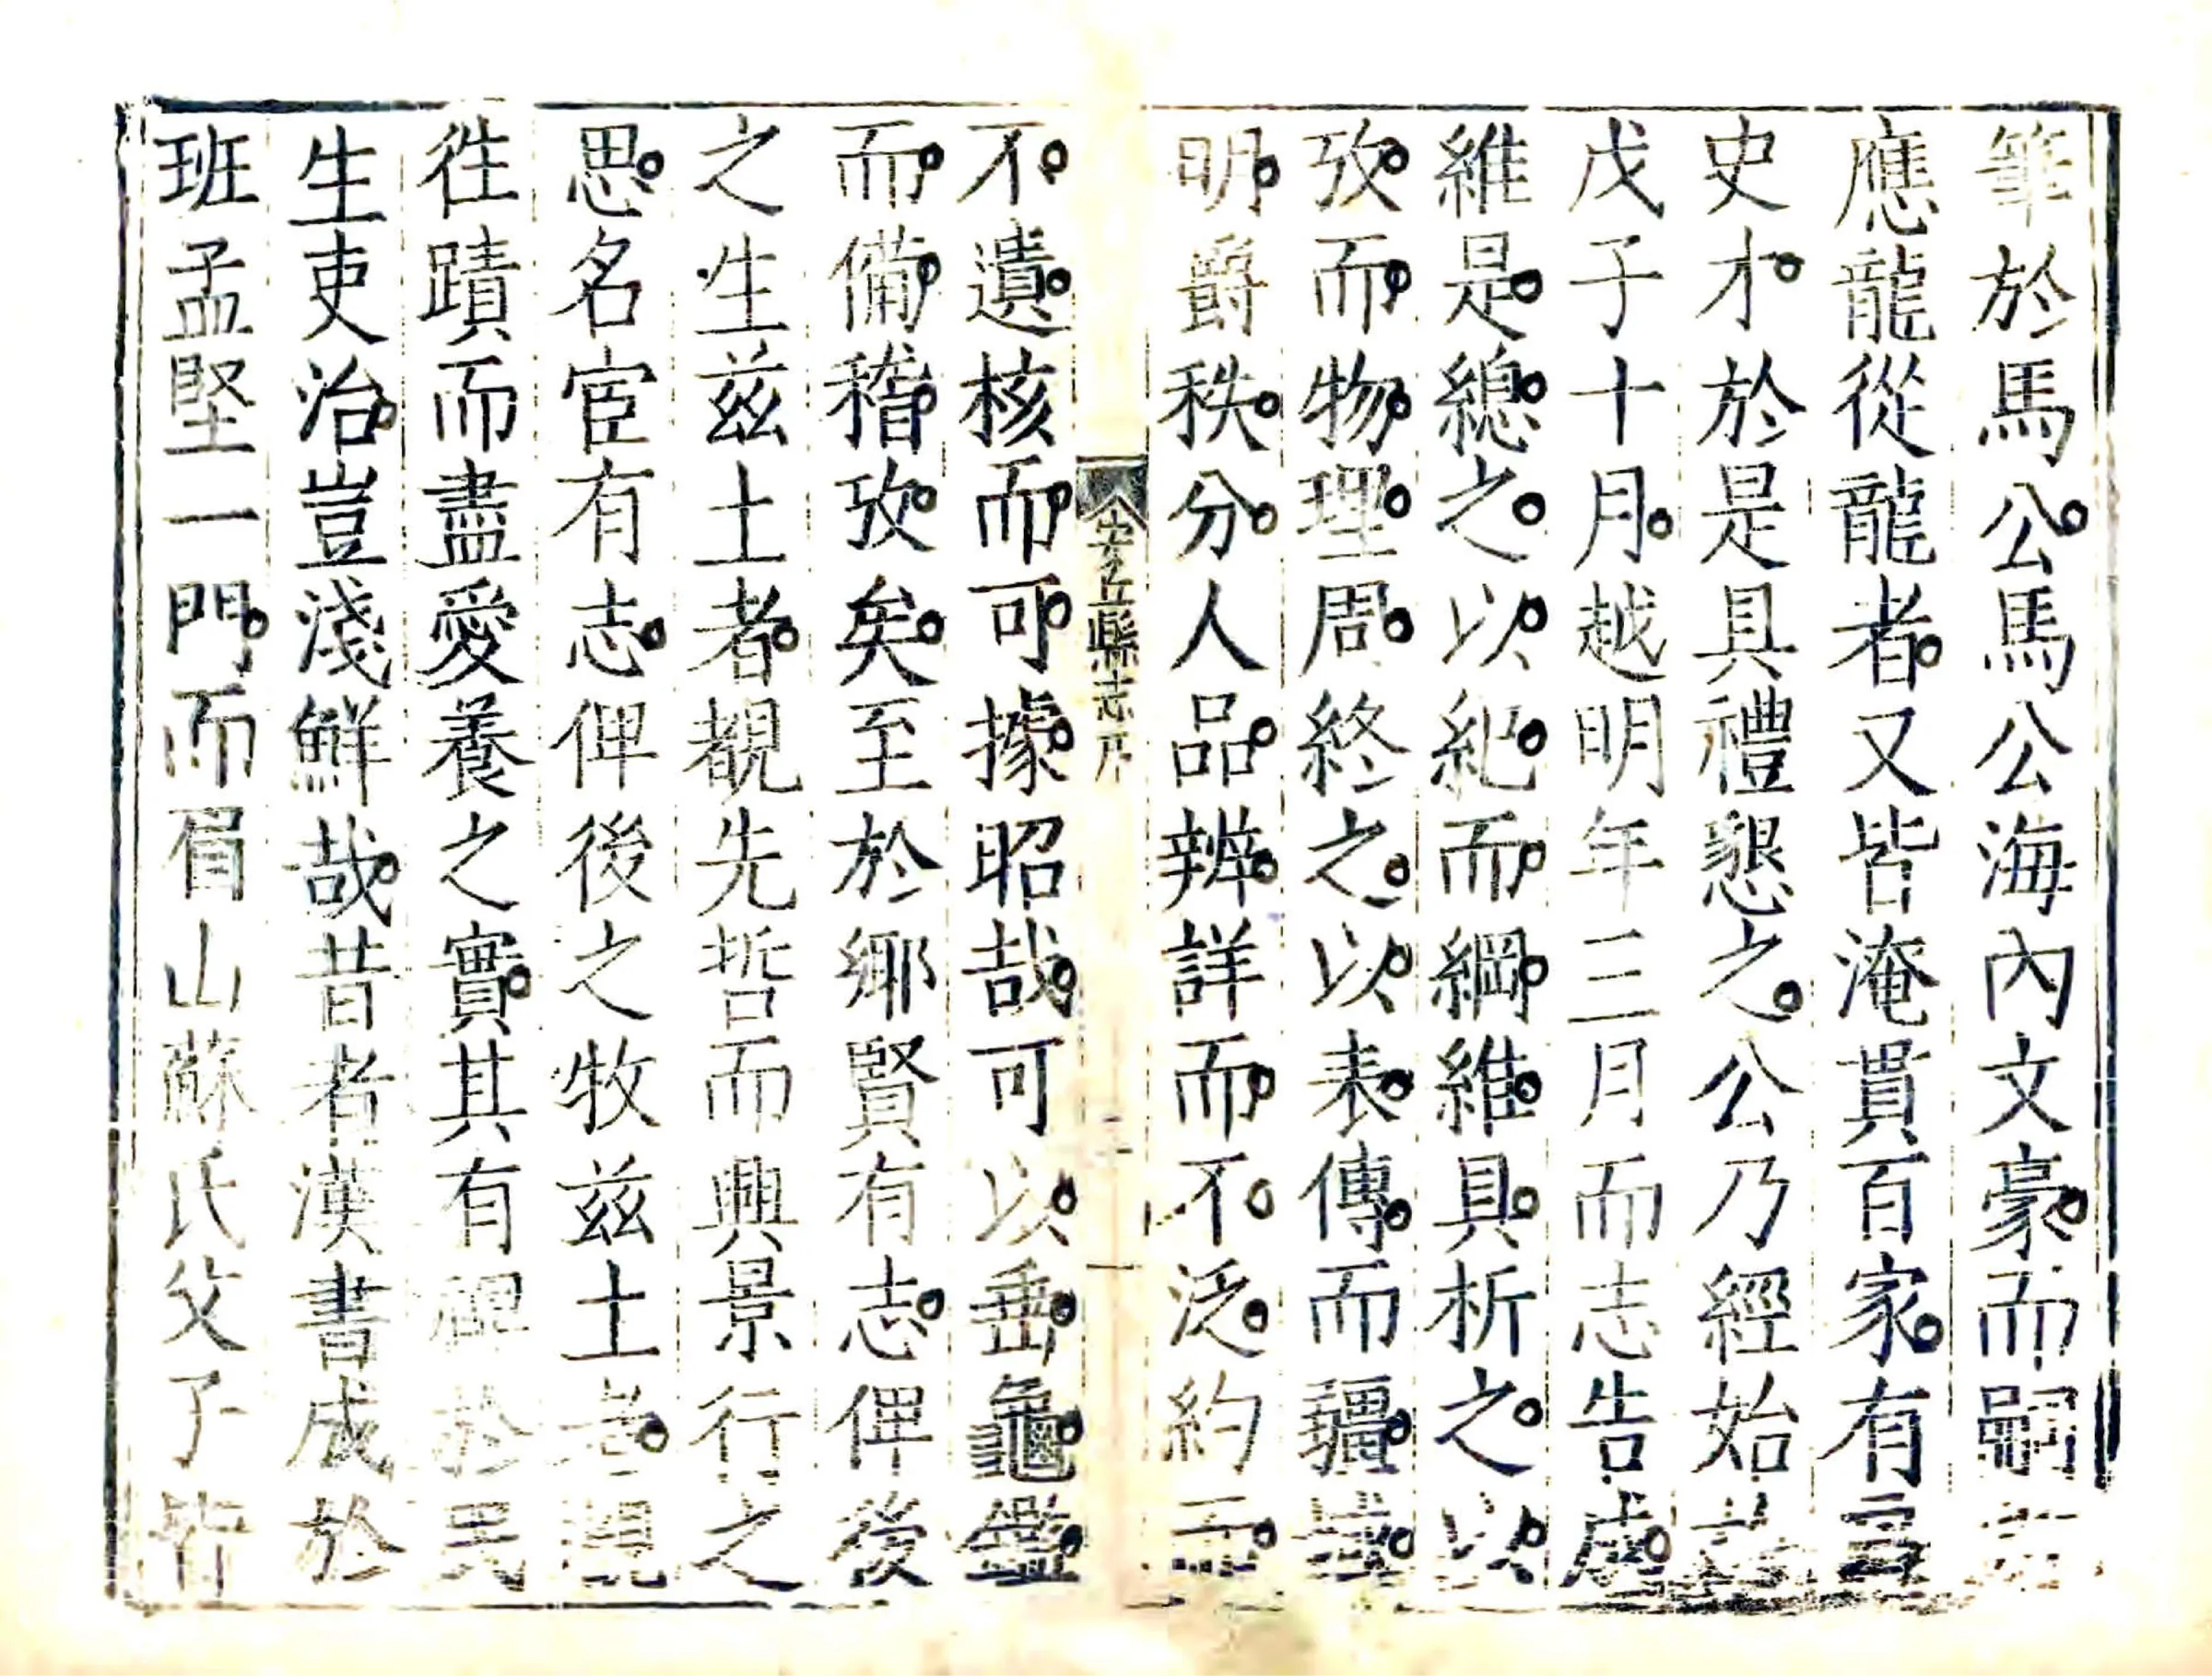 筆於馬公馬公海內文豪而嗣
應龍從龍者又皆淹貫百家有
史才於是具禮懇之公乃經始
戊子十月越明年三月而志告成
維是緫之以紀而綱維具析之以
攷而物理周終之以表傳而疆域
明爵秩分人品辨詳而不泛約而
安丘縣志序
一
不遺核而可據昭哉可以垂龜鑑
而備稽攷矣至於鄉賢有志俾後
之生茲土者覩先哲而興景行之
思名宦有志俾後之牧茲土者覩
徃蹟而盡愛養之實其有裨於民
生吏治豈淺鮮哉昔者漢書成於
班孟堅一門而眉山蘇氏父子皆